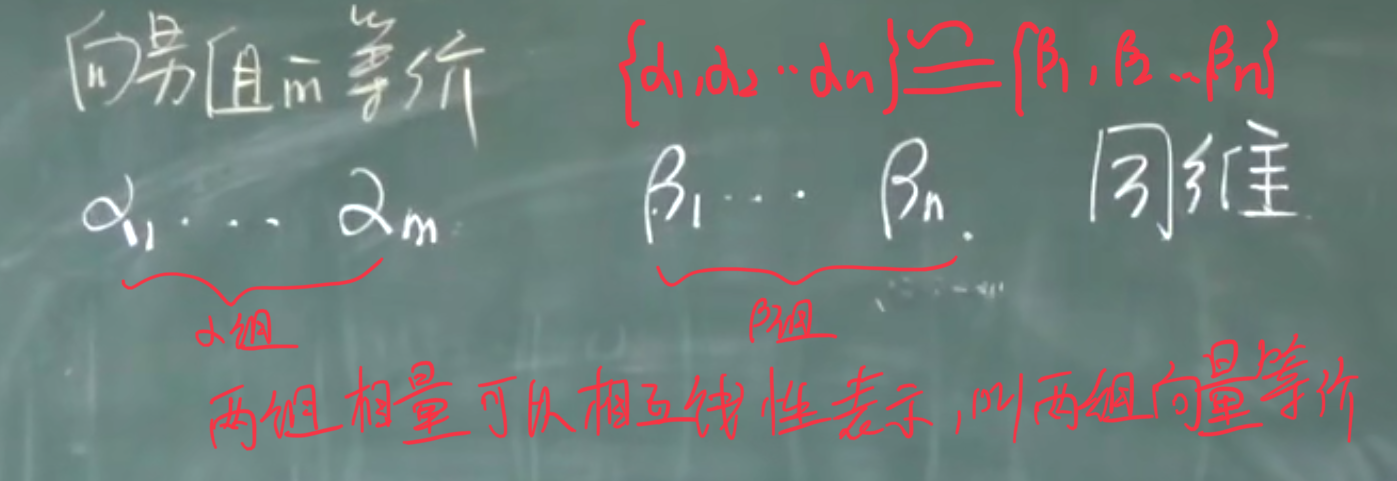 向量组的等价 {α1,α2‥αn}≌{β1,β2‥βn}
α1,… αm β1… βn. 同维
α组 β组
两组相量可以相互线性表示,则两组向量等价